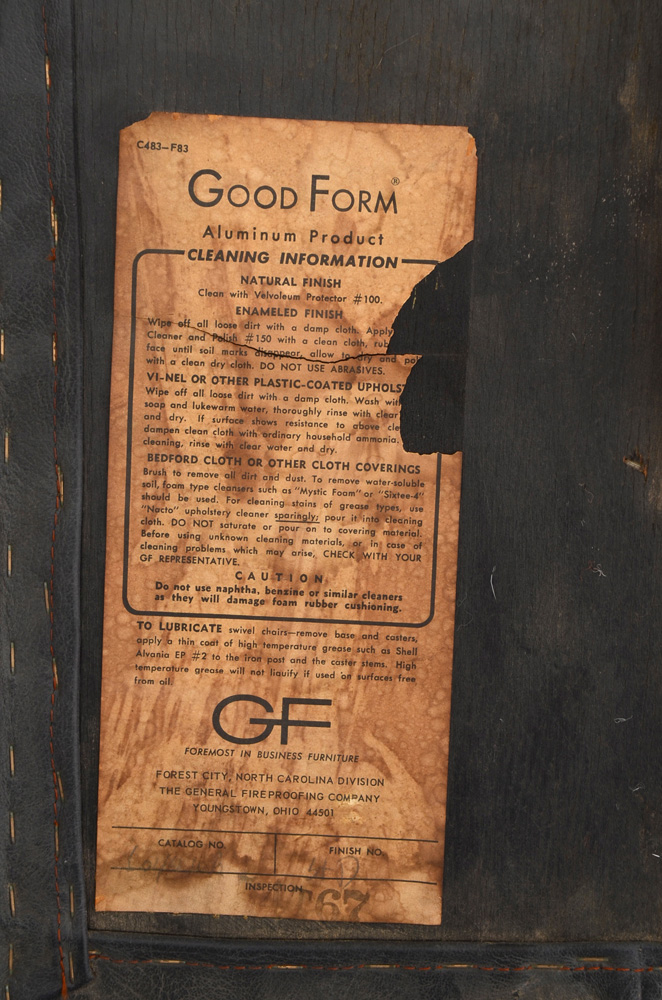 C483-F83
GOOD FORM®
Aluminum Product
CLEANING INFORMATION
NATURAL FINISH
Clean with Velvoleum Protector #100.
ENAMELED FINISH
Wipe off all loose dirt with a damp cloth. Apply
Cleaner and Polish #150 with a clean cloth, rub
face until soil marks disappear, allow to dry and pol
with a clean dry cloth. DO NOT USE ABRASIVES.
VI-NEL OR OTHER PLASTIC-COATED UPHOLST
Wipe off all loose dirt with a damp cloth. Wash with
soap and lukewarm water, thoroughly rinse with clear
and dry. If surface shows resistance to above cle
dampen clean cloth with ordinary household ammonia.
cleaning, rinse with clear water and dry.
BEDFORD CLOTH OR OTHER CLOTH COVERINGS
Brush to remove all dirt and dust. To remove water-soluble
soil, foam type cleansers such as "Mystic Foam" or "Sixtee-4"
should be used. For cleaning stains of grease types, use
"Nacto" upholstery cleaner sparingly; pour it into cleaning
cloth. DO NOT saturate or pour on to covering material.
Before using unknown cleaning materials, or in case of
cleaning problems which may arise, CHECK WITH YOUR
GF REPRESENTATIVE.
CAUTION
Do not use naphtha, benzine or similar cleaners
as they will damage foam rubber cushioning.
TO LUBRICATE swivel chairs—remove base and casters,
apply a thin coat of high temperature grease such as Shell
Alvania EP #2 to the iron post and the caster stems. High
temperature grease will not liquify if used on surfaces free
from oil.
GF
FOREMOST IN BUSINESS FURNITURE
FOREST CITY, NORTH CAROLINA DIVISION
THE GENERAL FIREPROOFING COMPANY
YOUNGSTOWN, OHIO 44501
CATALOG NO. FINISH NO.
INSPECTION
67